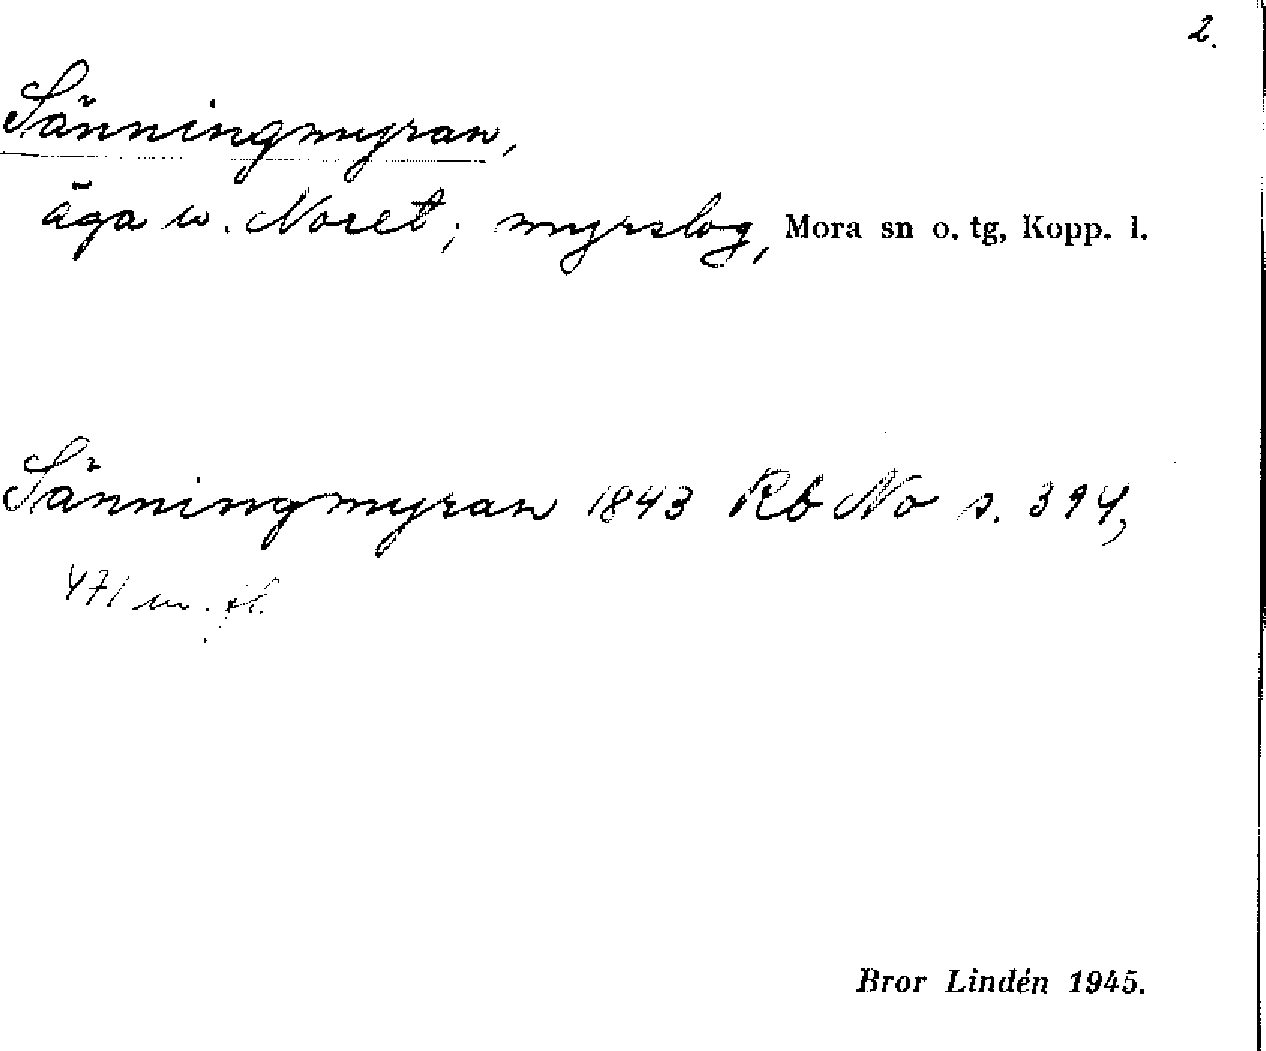 2.
Sänningmyran,
äga u. Noret; myrslog, Mora sn o. tg, Kopp. l.
Sänningmyran 1843 Rb No s. 394,
471 m. fl.
Bror Lindén 1945.